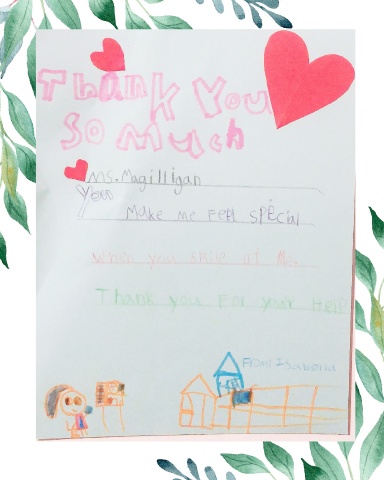 Thank You
So Much
Ms. Magilligan
You
Make me FEEl SPEcial
when you smile at Me.
Thank you For your HElP
From Isabella